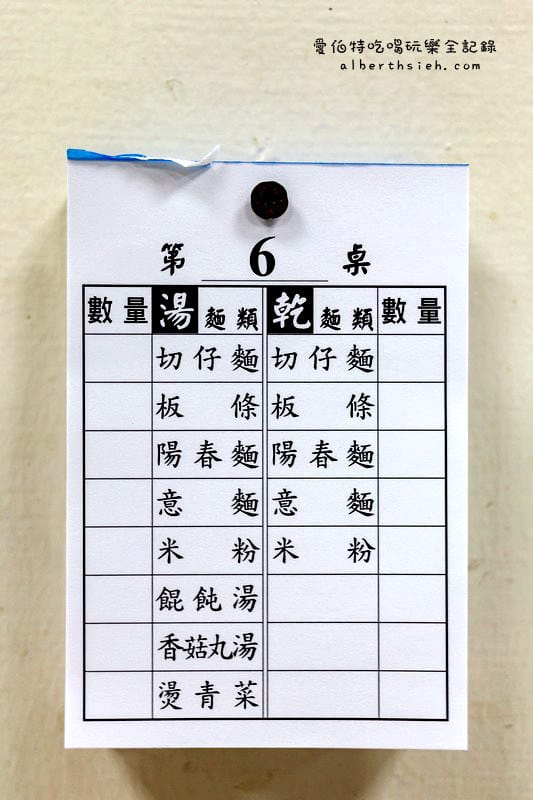 愛伯特吃喝玩樂全記錄
alberthsieh.com
第 6 桌
數量 湯麵類 乾麵類 數量
切仔麵 切仔麵
板條 板條
陽春麵 陽春麵
意麵 意麵
米粉 米粉
餛飩湯
香菇丸湯
燙青菜